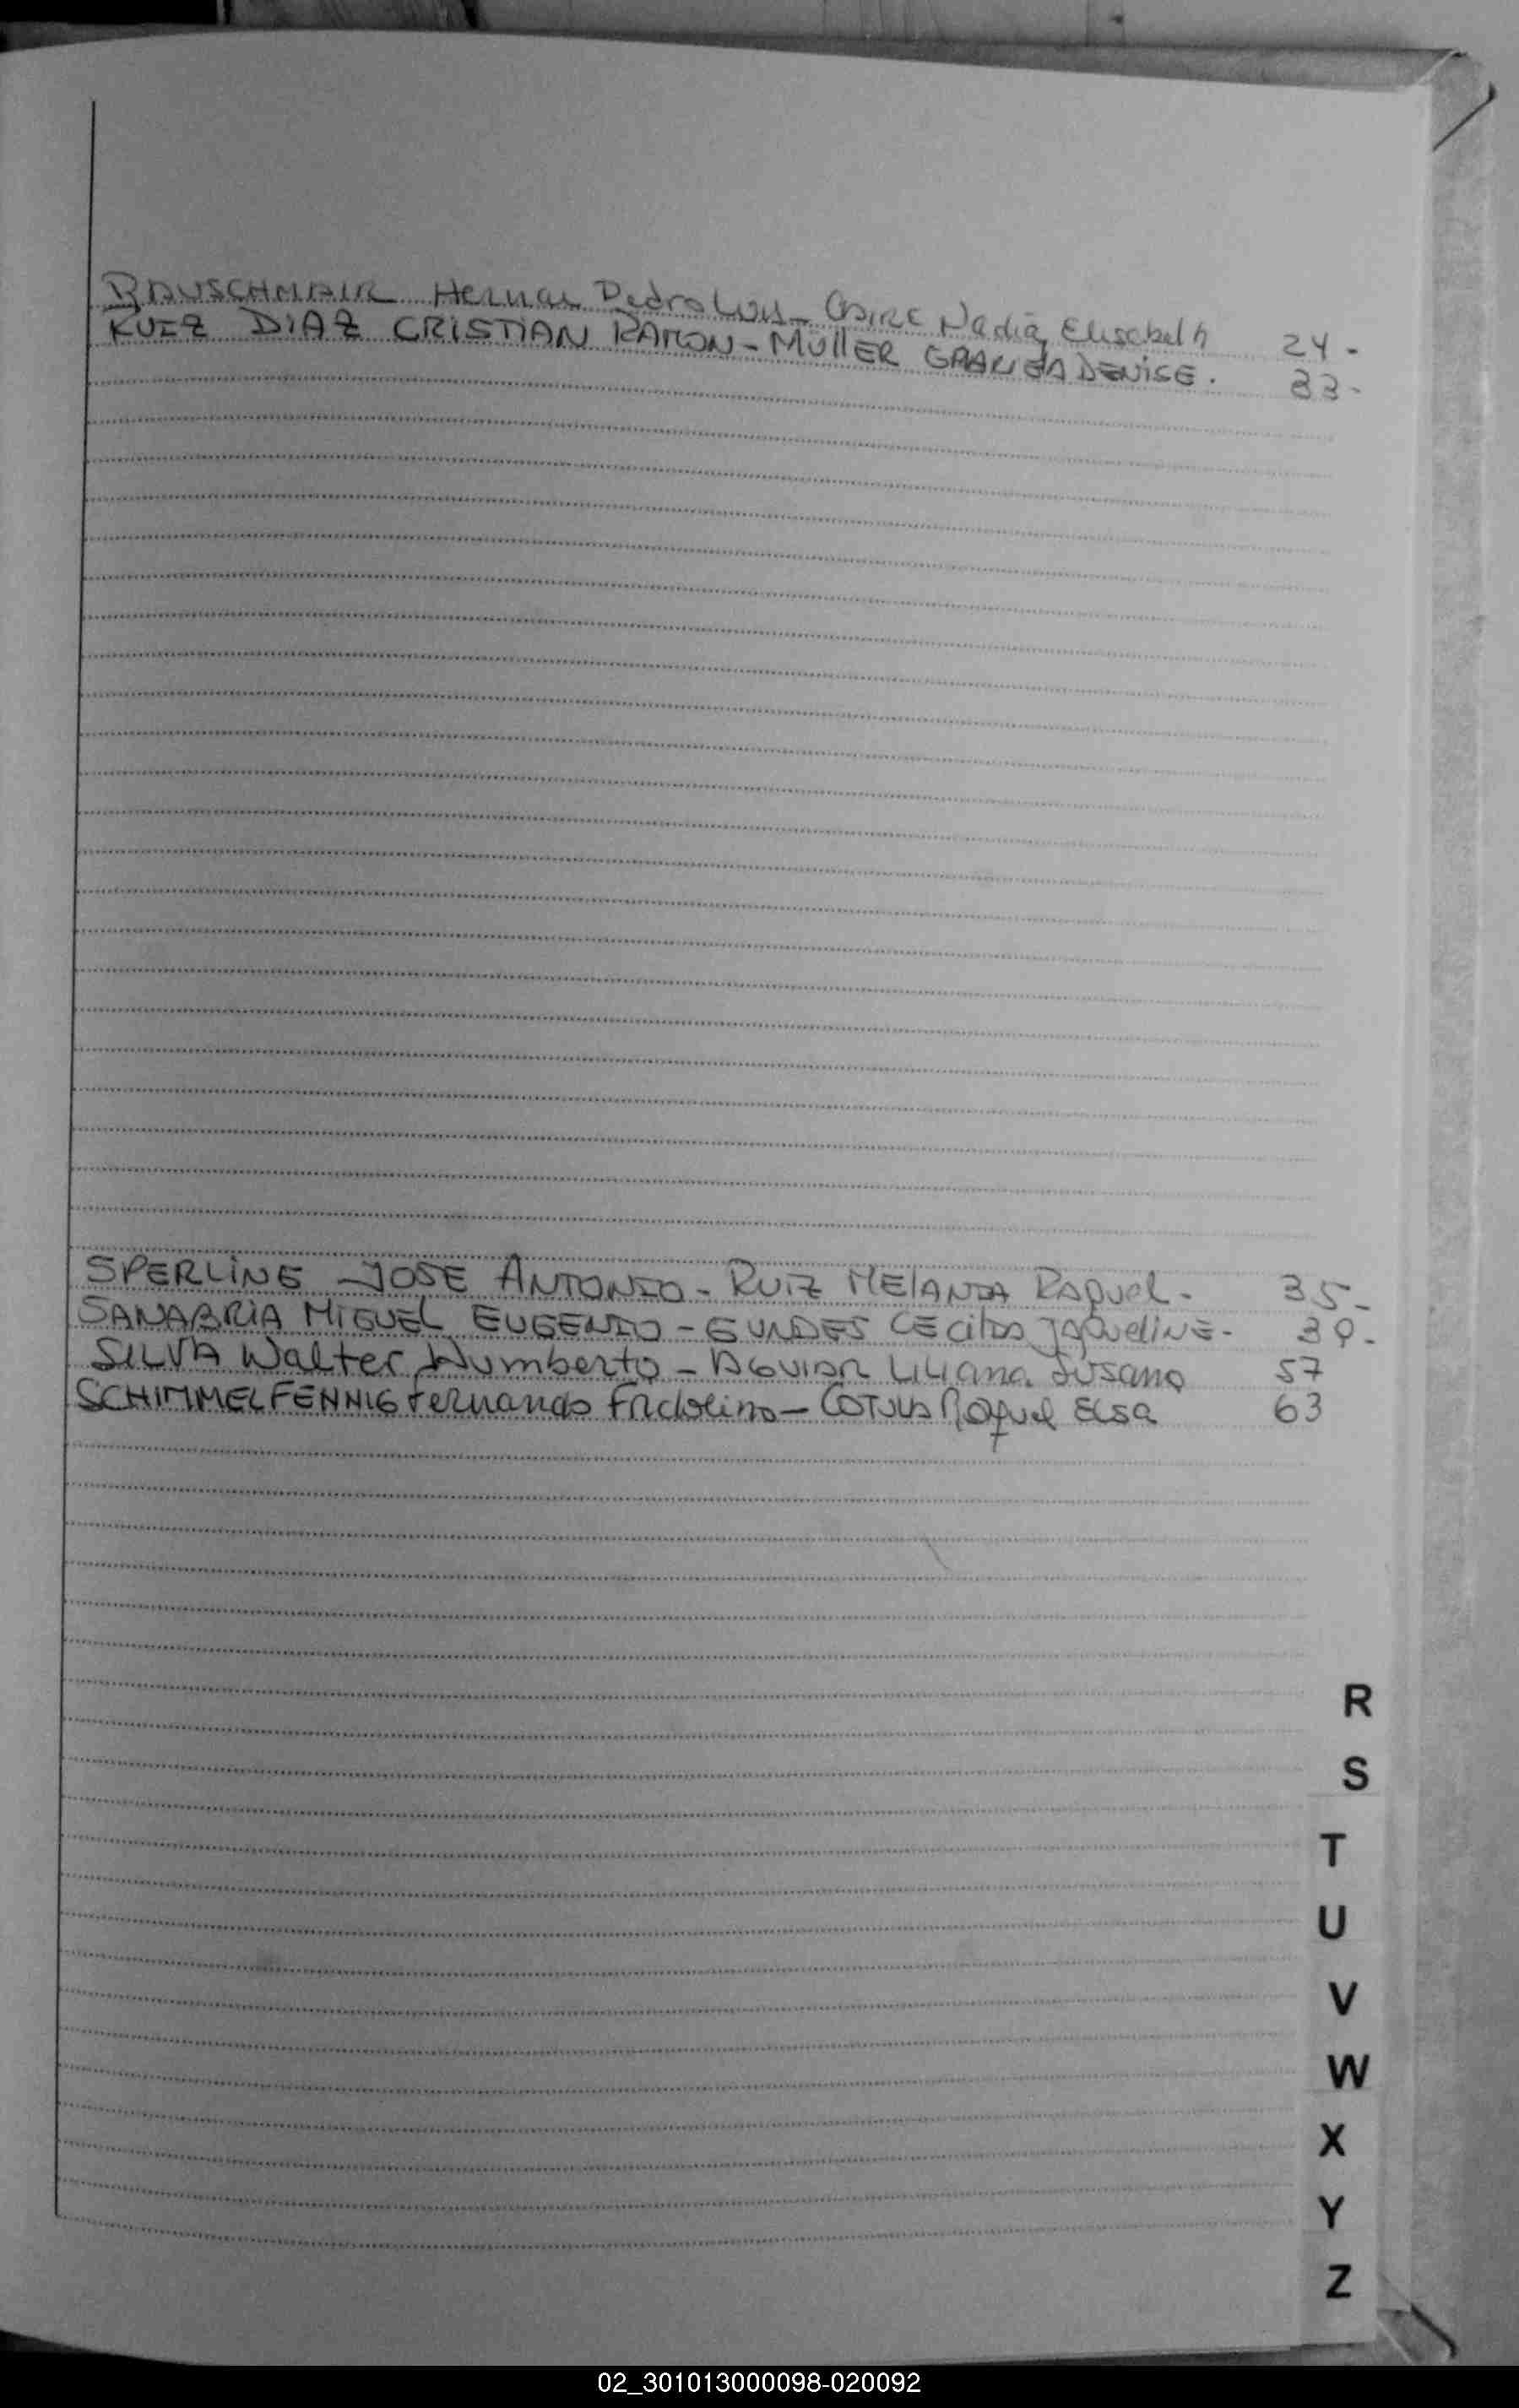 RAUSCHMAIR Hernan Pedro Luis - Nadia Elisabeth 24-
RUIZ DIAZ CRISTIAN RAMON - MÜllER DENISE. 33-
SPERLING JOSE ANTONIO - RUIZ MELANIA RAQUEL- 35-
SANABRIA MIGUEL EUGENIO - JAQUELINE- 39-
SILVA Walter Humberto - AGUIAR LILIana Susana 57
SCHIMMELFENNIG Fernando Fridolino - Raquel Elsa 63
R
S
T
U
V
W
X
Y
Z
02_301013000098-020092